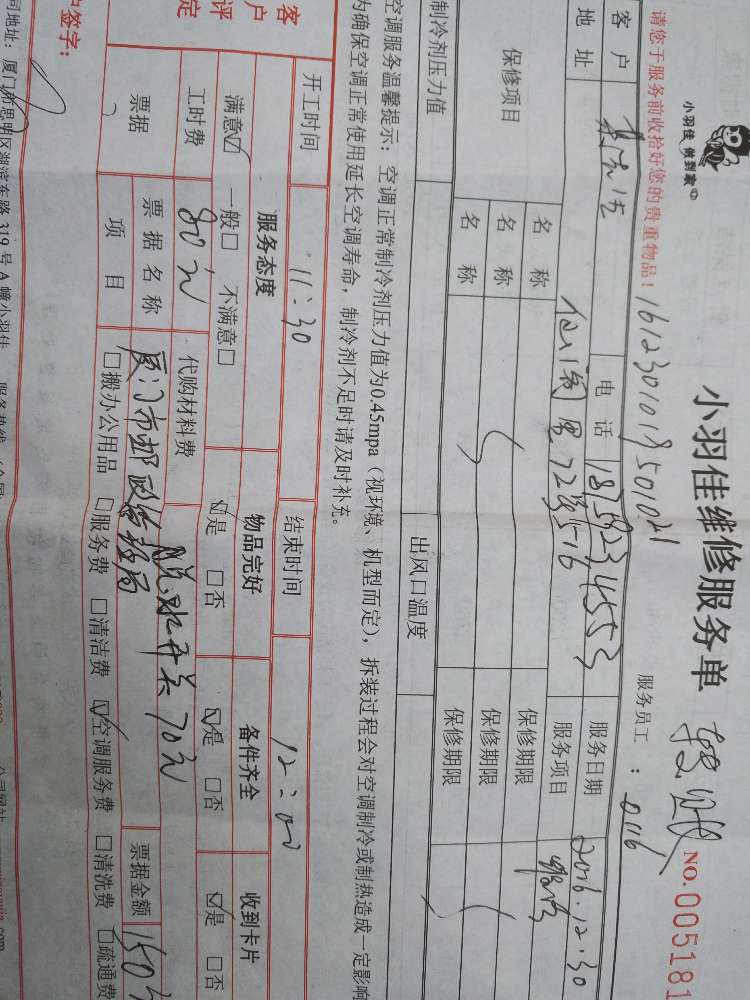 小羽佳 做到家
小羽佳维修服务单
NO.005181
请您于服务前收拾好您的贵重物品！ 1612301018501021
服务员工：0116
客户 电话 18159234553 服务日期 2016.12.30
地址 72号 服务项目
保修项目 名称 保修期限
名称 保修期限
名称 保修期限
制冷剂压力值 出风口温度
空调服务温馨提示：空调正常制冷剂压力值为0.45mpa（视环境、机型而定），拆装过程会对空调制冷或制热造成一定影响
为确保空调正常使用延长空调寿命，制冷剂不足时请及时补充。
开工时间 11:30 结束时间 12:00
客户评定
服务态度 物品完好 备件齐全 收到卡片
满意☑ 一般□ 不满意□ ☑是 □否 ☑是 □否 ☑是 □否
工时费 80元 代购材料费 脱水开关70元
票据 票据名称 厦门市邮政管理局 票据金额 150元
项目 □搬办公用品 □服务费 □清洁费 ☑空调服务费 □清洗费 □疏通费
户签字：
司地址：厦门市思明区湖滨东路319号A幢小羽佳 服务热线（全国）